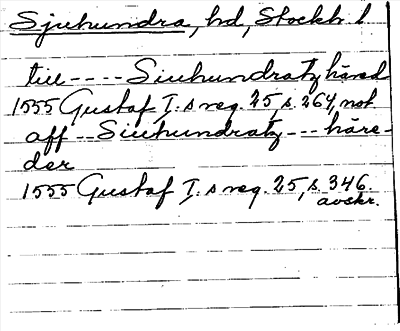 Sjuhundra, hd, Stockh. l
till ---- Siuhundratz häred
1555 Gustaf I:s reg. 25, s. 264, not
aff -- Siuhundratz --- häre-
der
1555 Gustaf I:s reg. 25, s. 346.
avskr.